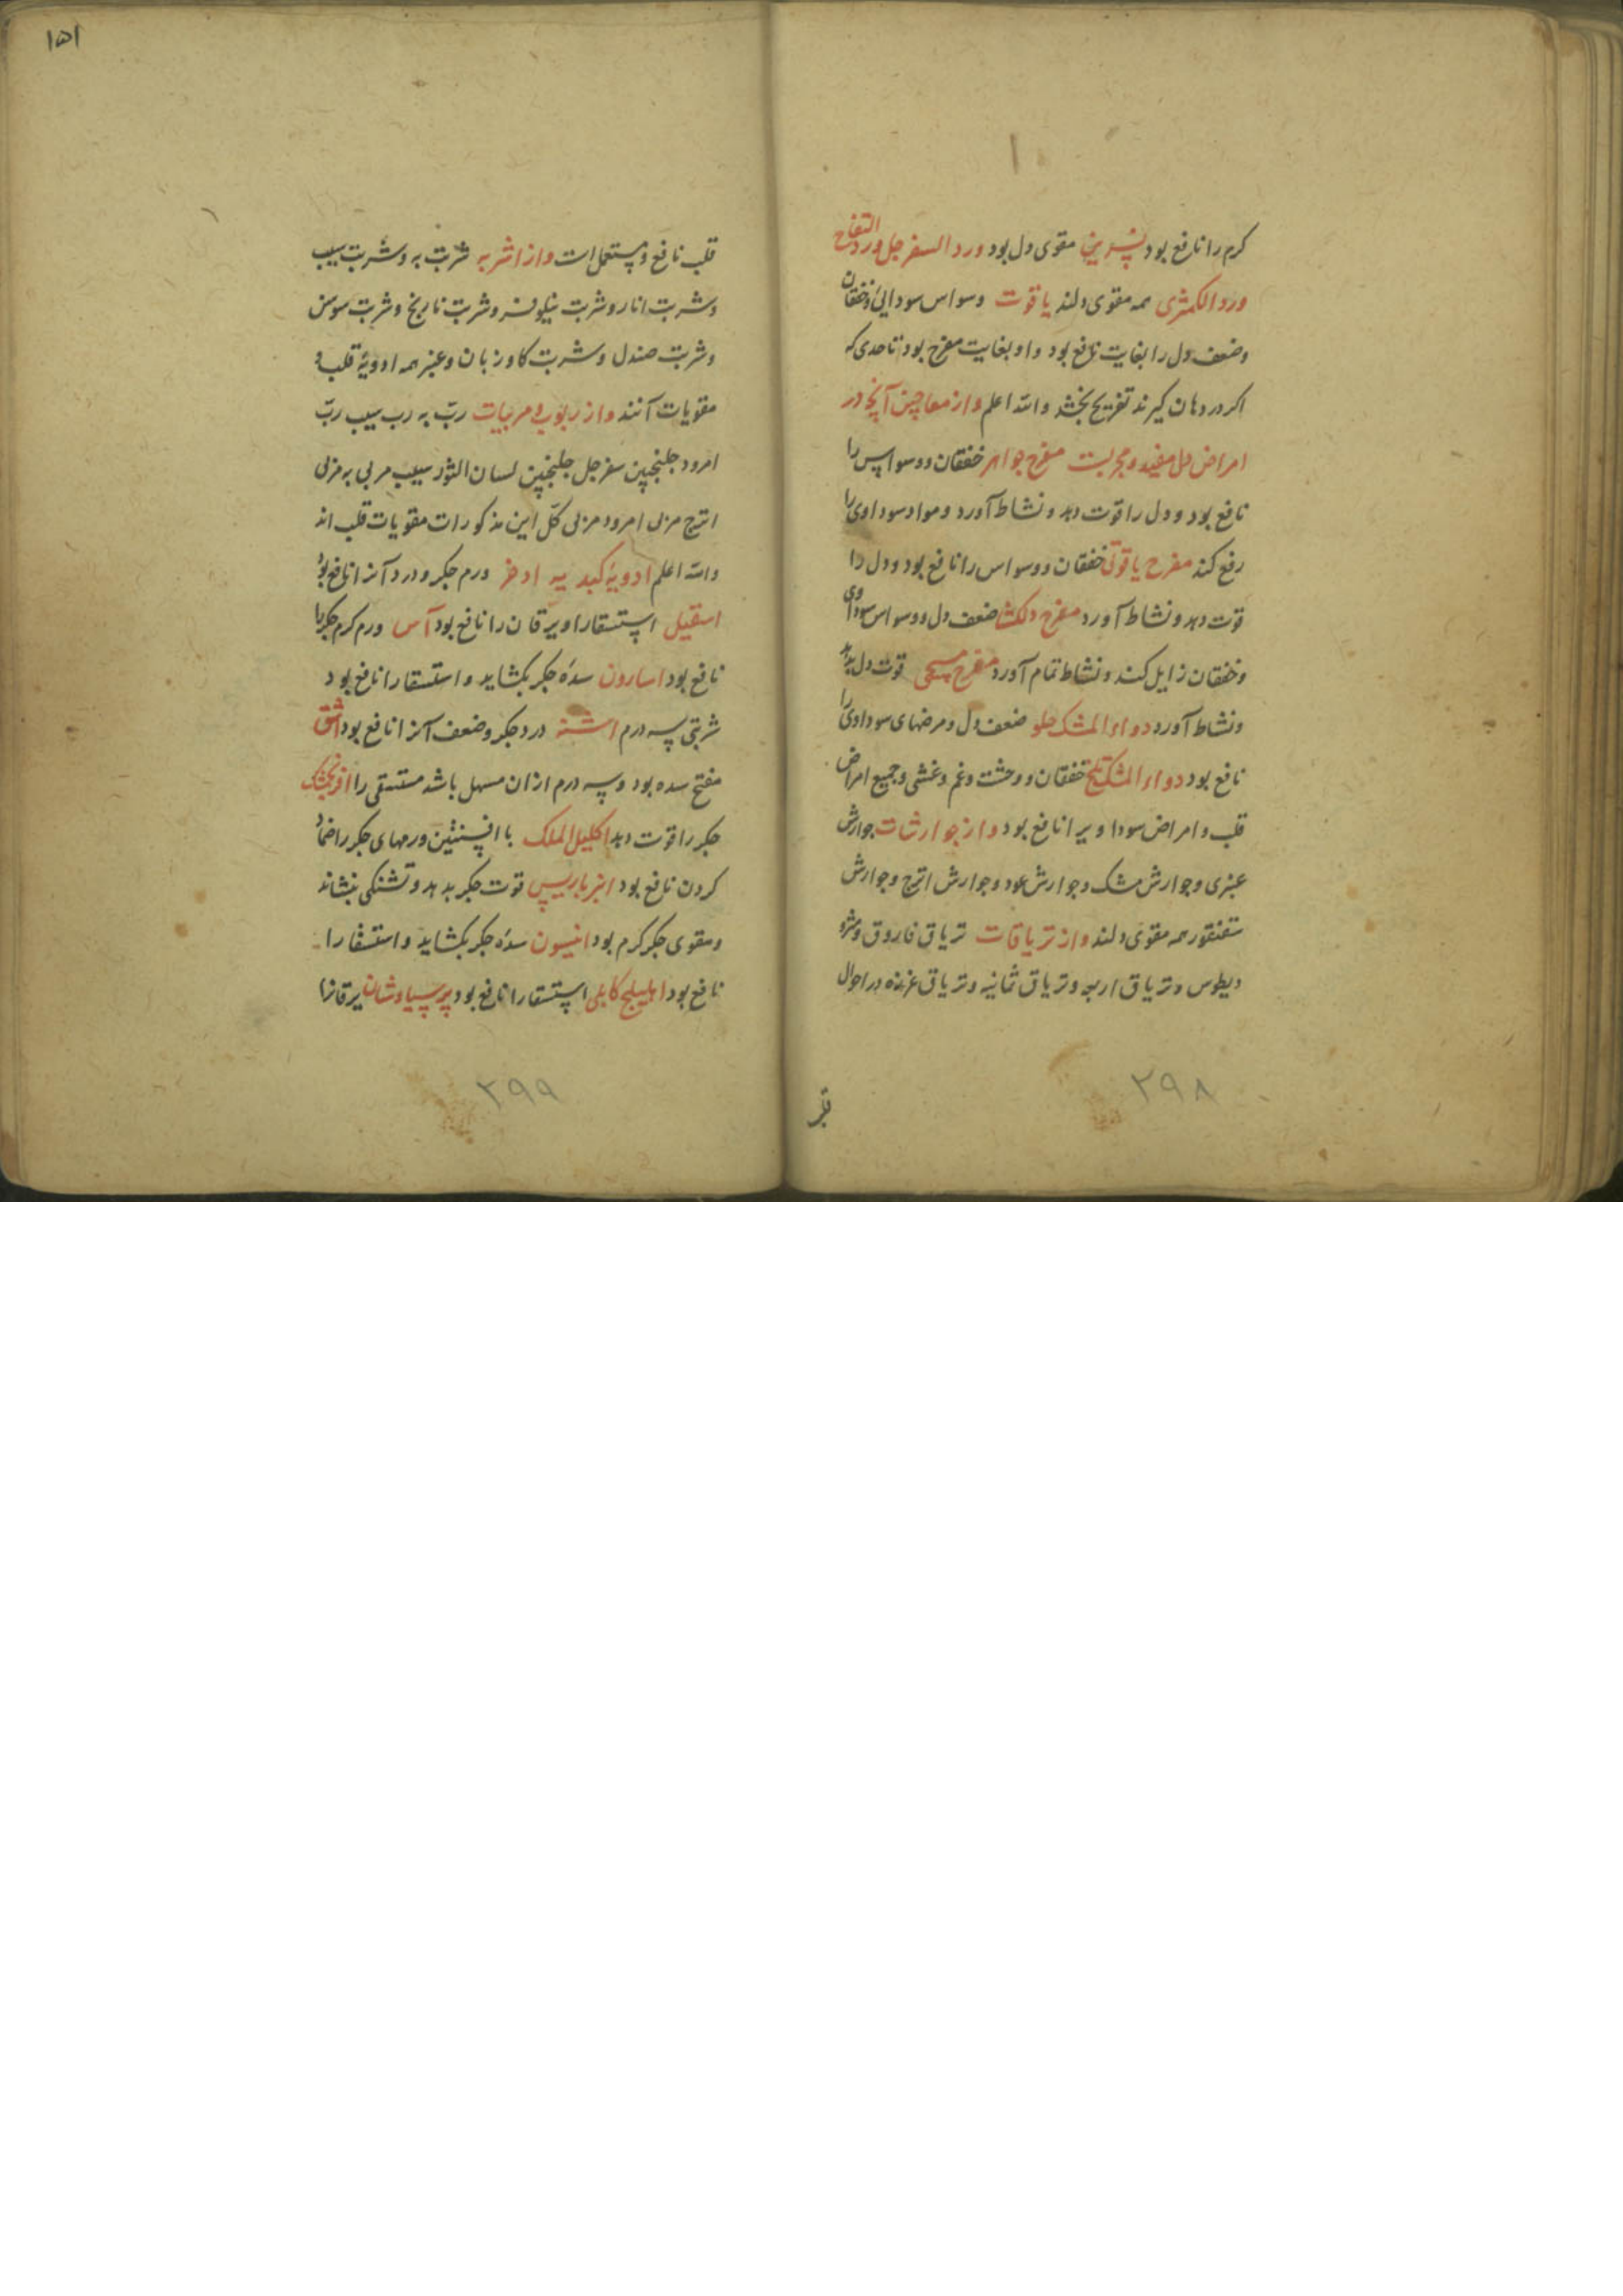 کرم را نافع بود نسرین مقوی دل بود ورد السفرجل ورد التفاح
ورد الکمثری همه مقوی دلند یاقوت وسواس سودایی و خفقان
وضعف دل را بغایت نافع بود و او بغایت مفرح بود تا حدی که
اکر در دهان کیرند تفریح بخشد والله اعلم و از معاجین آنچه در
امراض دل مفید و مجربست مفرح جواهر خفقان و وسواس را
نافع بود و دل را قوت دهد و نشاط آورد و مواد سوداوی را
رفع کند مفرح یاقوتی خفقان و وسواس را نافع بود و دل را
قوت دهد و نشاط آورد مفرح دلکشا ضعف دل و وسواس سوداوی
و خفقان زایل کند و نشاط تمام آورد مفرح مسیحی قوت دل بدهد
و نشاط آورد دواء المشک حلو ضعف دل و مرضهای سوداوی را
نافع بود دواء المشک تلخ خفقان و وحشت و غم و غشی و جمیع امراض
قلب و امراض سوداویرا نافع بود و از جوارشات جوارش
عنبری و جوارش مشک و جوارش عود و جوارش اترج و جوارش
سقنقور همه مقوی دلند و از تریاقات تریاق فاروق و مثرو
دیطوس و تریاق اربعه و تریاق ثمانیه و تریاق عزره در احوال
۲۹۸
۱۵۱
قلب نافع و مستعمل است و از اشربه شربت به و شربت سیب
و شربت انار و شربت نیلوفر و شربت نارنج و شربت سوسن
و شربت صندل و شربت کاوزبان و عنبر همه ادویۀ قلب و
مقویات آنند و از ربوب و مربیات ربّ به رب سیب ربّ
امرود جلنجبین سفرجل جلنجبین لسان الثور سیب مربی به مربی
اترج مربی امرود مربی کلّ این مذکورات مقویات قلب اند
والله اعلم ادویۀ کبدیه اذخر ورم جکر و درد آنرا نافع بود
اسقیل استسقا را و یرقان را نافع بود آس ورم کرم جکر را
نافع بود اسارون سدۀ جکر بکشاید و استسقا را نافع بود
شربتی سه درم اشنه درد جکر و ضعف آنرا نافع بود اشق
مفتح سده بود و سه درم ازان مسهل باشد مستسقی را افرنجمشک
جکر را قوت دهد اکلیل الملک با افسنتین ورمهای جکر را ضماد
کردن نافع بود انبرباریس قوت جکر بدهد و تشنکی بنشاند
و مقوی جکر کرم بود انیسون سدۀ جکر بکشاید و استسقا را
نافع بود اهلیلج کابلی استسقا را نافع بود پرسیاوشان یرقانرا
۲۹۹